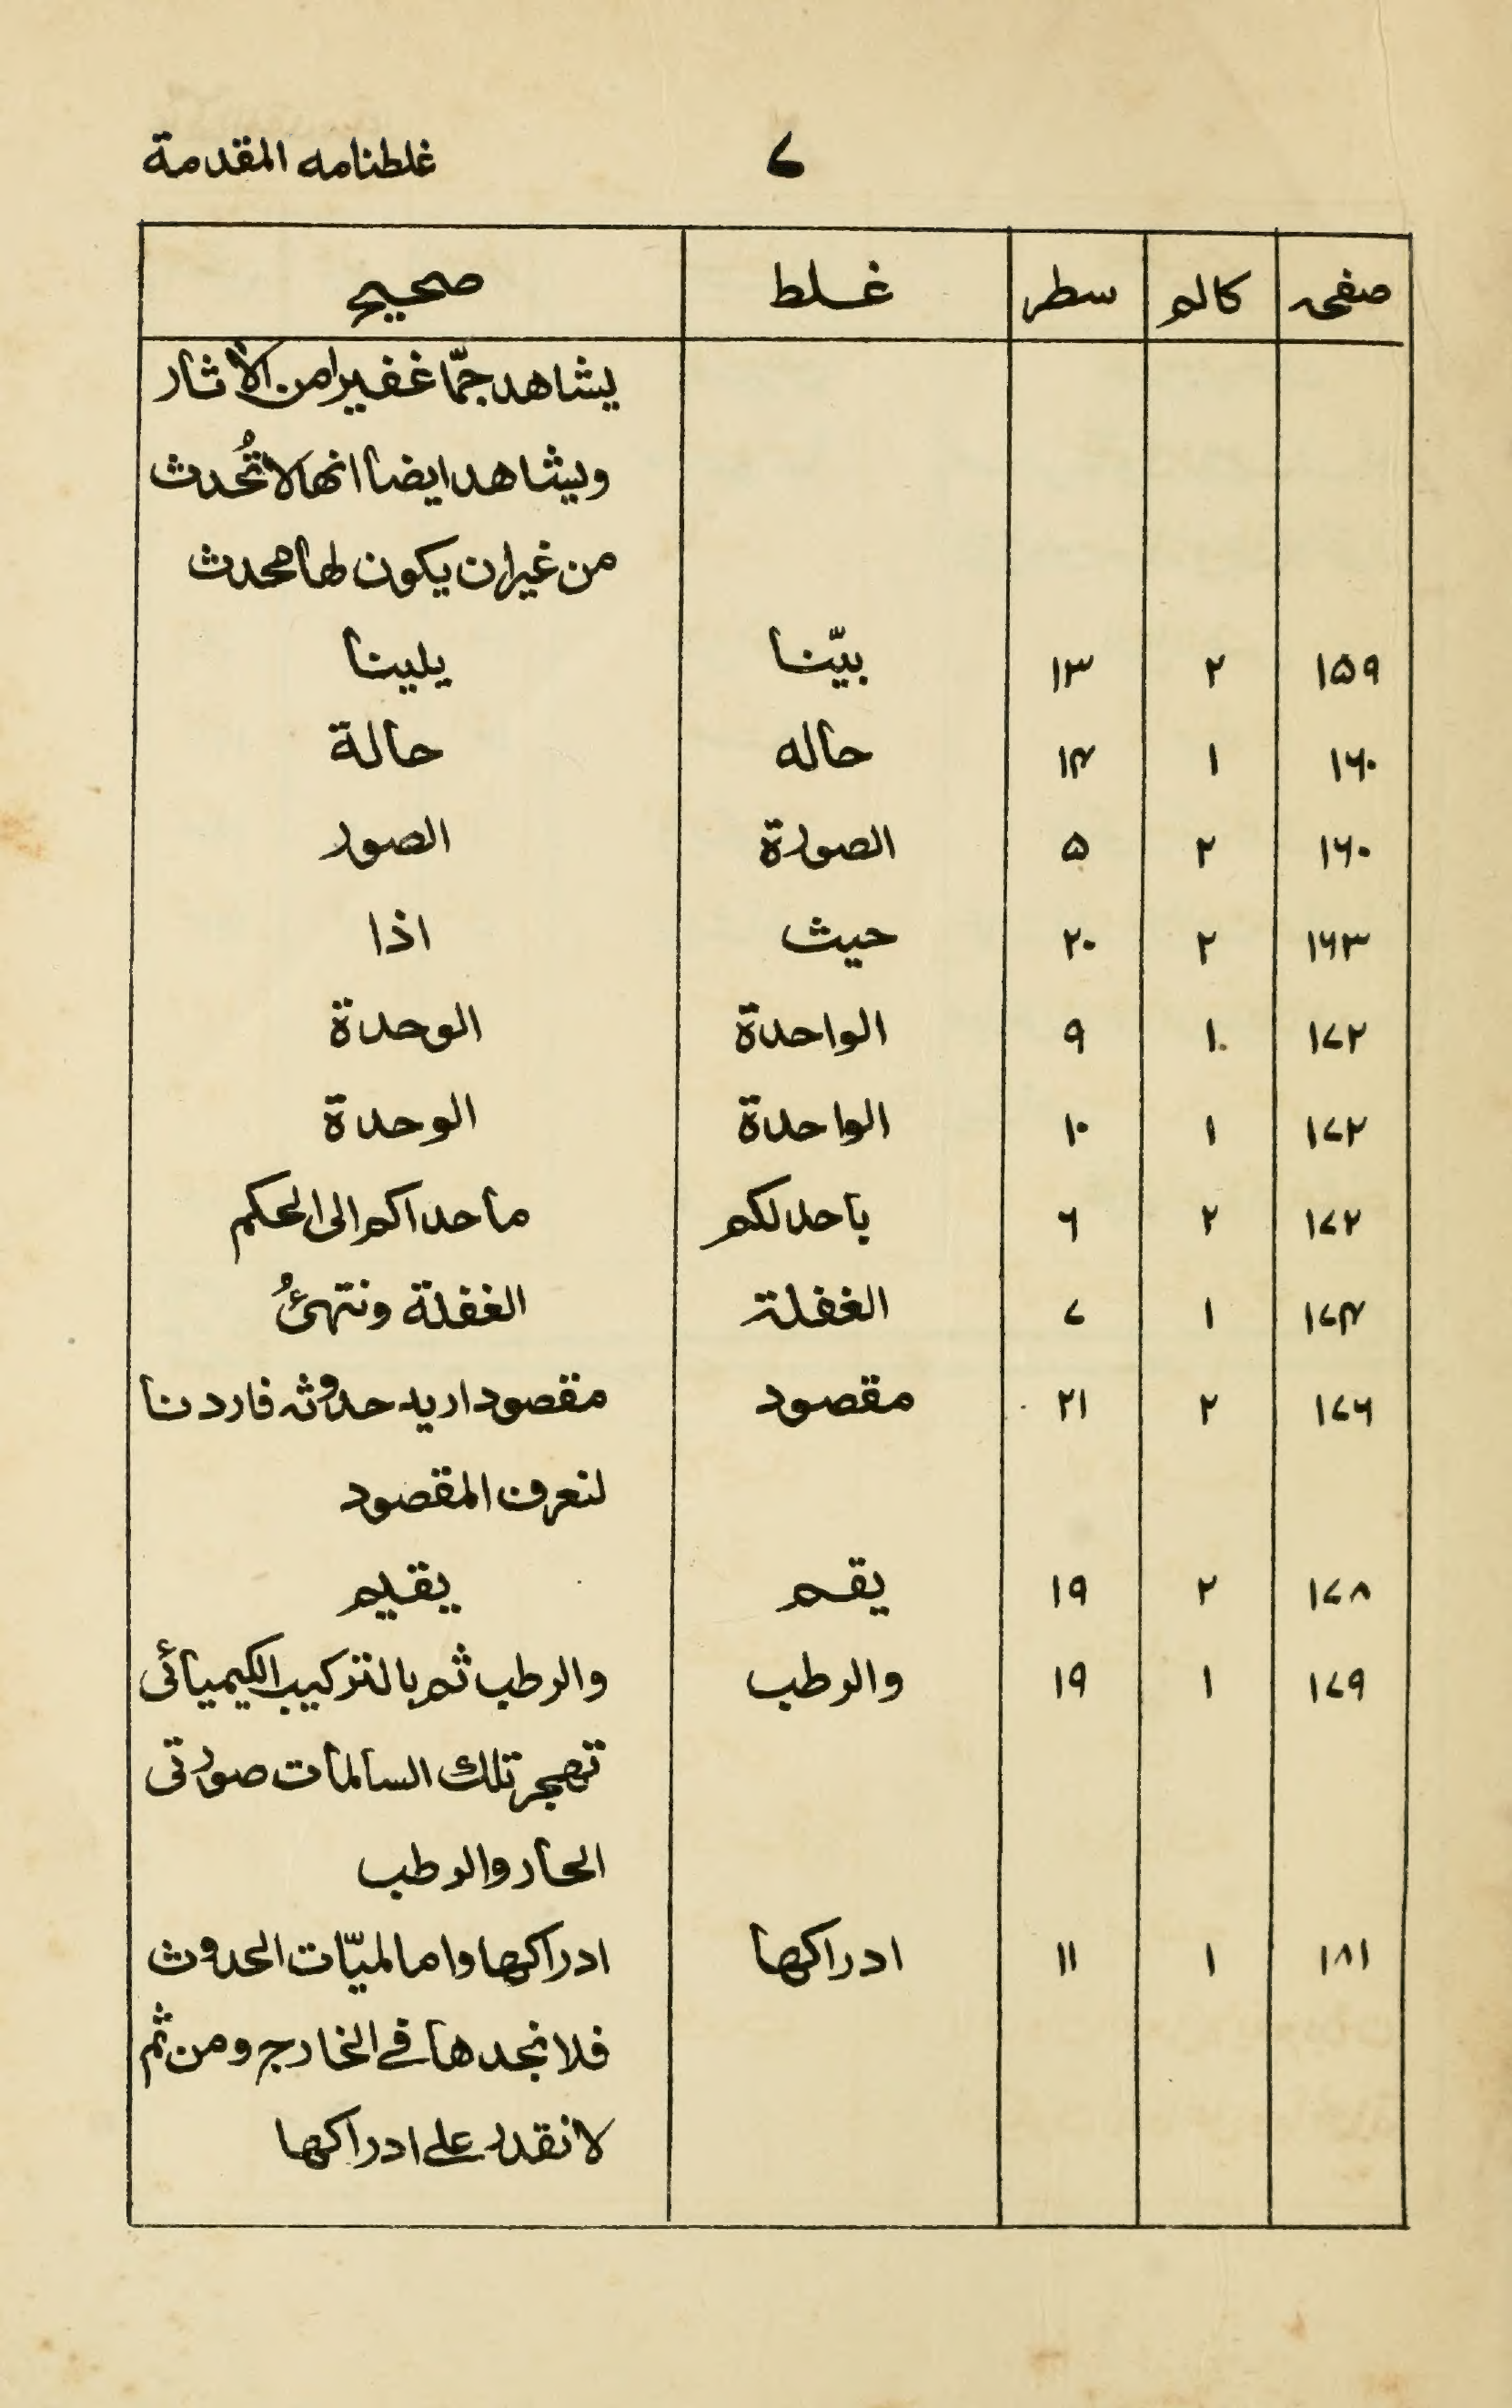 غلطنامه المقدمة
۷
صفحہ کالم سطر غلط صحیح
یشاهد جمّا غفیرا من الآثار
ویشاهد ایضا انها لا تُحدث
من غیر ان یکون لها محدث
۱۵۹ ۲ ۱۳ بیّنا یلینا
۱۶۰ ۱ ۱۴ حاله حالة
۱۶۰ ۲ ۵ الصورة الصور
۱۶۳ ۲ ۲۰ حیث اذا
۱۷۲ ۱ ۹ الواحدة الوحدة
۱۷۲ ۱ ۱۰ الواحدة الوحدة
۱۷۲ ۲ ۶ باحدلکم ما حداکم الی الحکم
۱۷۴ ۱ ۷ الغفلة الغفلة ونتهیٔ
۱۷۶ ۲ ۲۱ مقصود مقصود ارید حدوثه فاردنا
لنعرف المقصود
۱۷۸ ۲ ۱۹ یقم یقیم
۱۷۹ ۱ ۱۹ والرطب والرطب ثم بالترکیب الکیمیائی
تهجر تلك السالمات صورتی
الحار والرطب
۱۸۱ ۱ ۱۱ ادراکها ادراکها واما لمیّات الحدوث
فلا نجدها فی الخارج ومن ثم
لا نقدر علی ادراکها